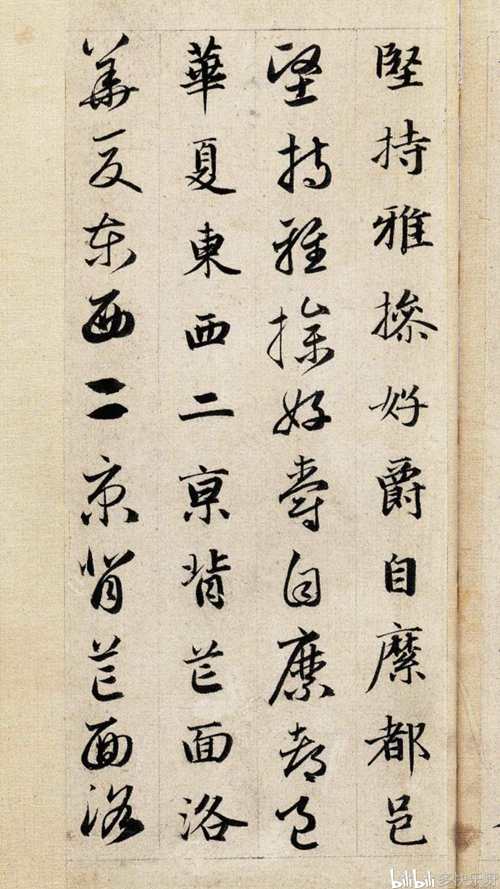 堅持雅操好爵自縻都邑
堅持雅操好爵自縻都邑
華夏東西二京背芒面洛
華夏東西二京背芒面洛
bilibili